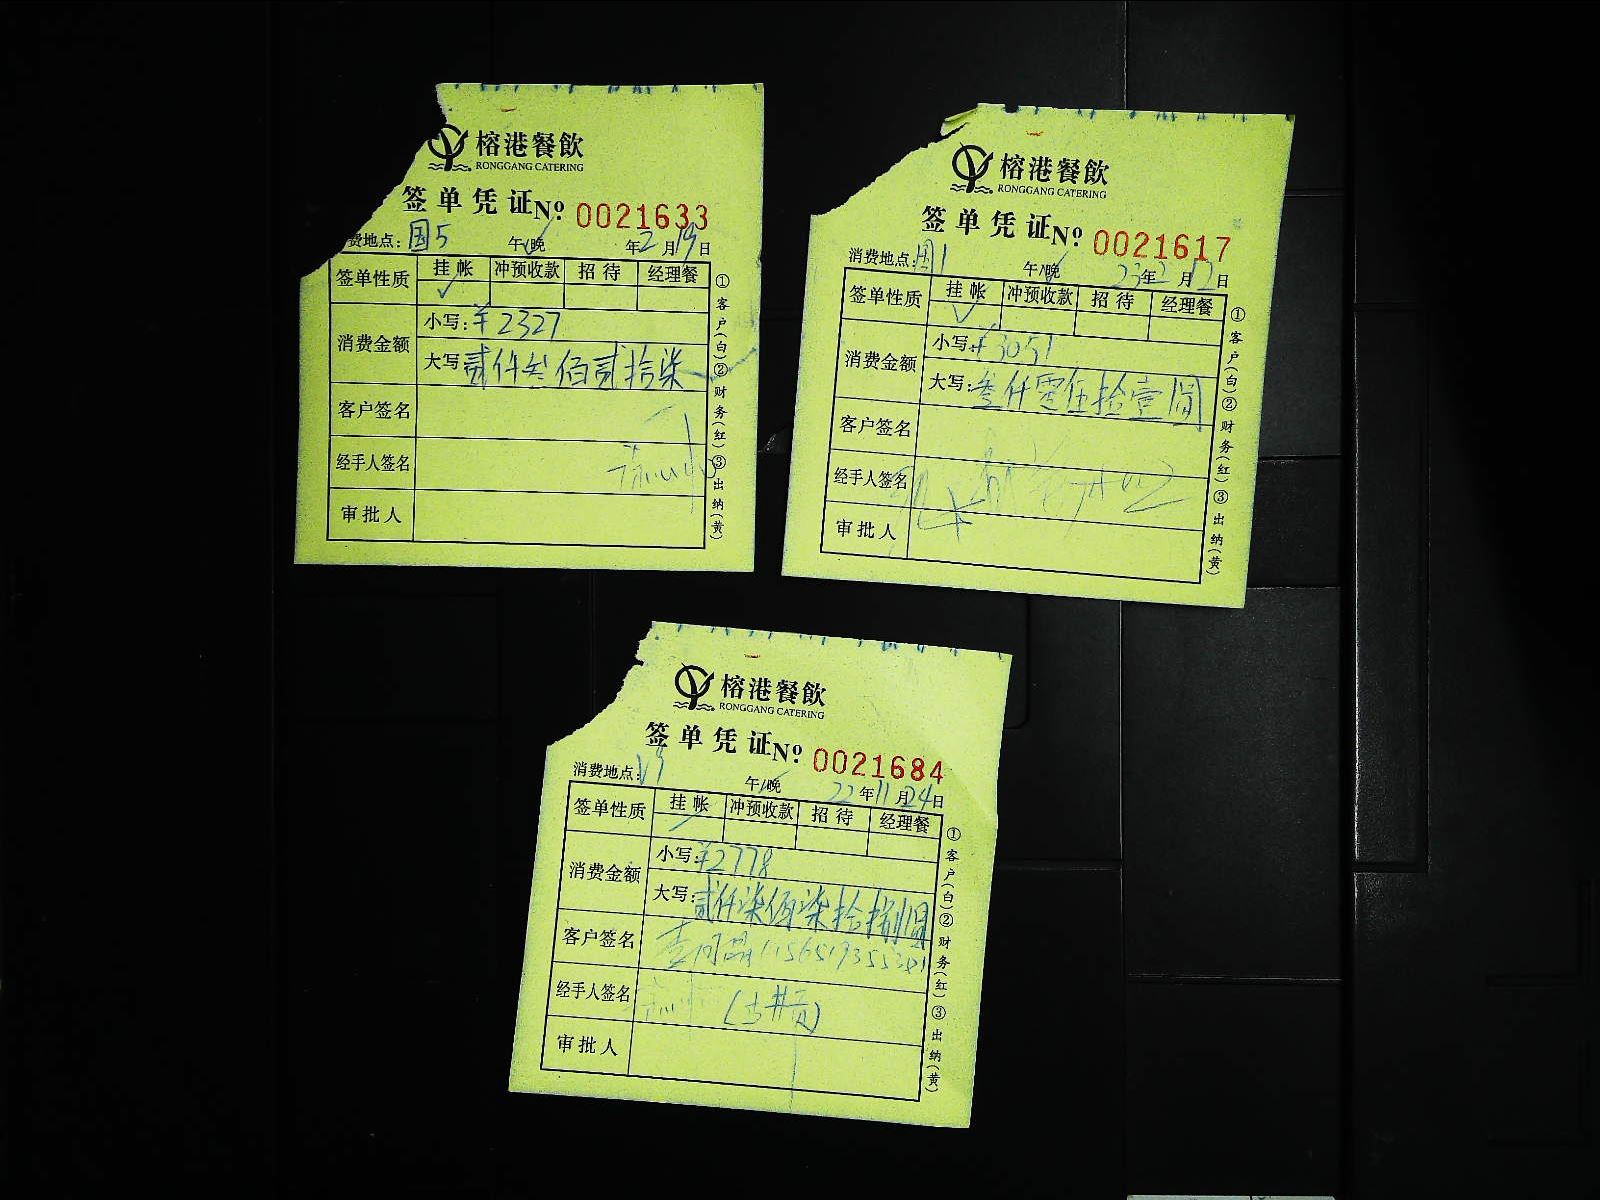 榕港餐飲
RONGGANG CATERING
签单凭证 № 0021633
费地点: 国5 午/晚 年2月19日
签单性质 挂帐 冲预收款 招待 经理餐
✓
消费金额 小写: ¥2327
大写 贰仟叁佰贰拾柒
客户签名
经手人签名
审批人
①客户(白)②财务(红)③出纳(黄)
榕港餐飲
RONGGANG CATERING
签单凭证 № 0021617
消费地点: 国1 午/晚 23年2月12日
签单性质 挂帐 冲预收款 招待 经理餐
✓
消费金额 小写: ¥3051
大写: 叁仟零伍拾壹圆
客户签名
经手人签名
审批人
①客户(白)②财务(红)③出纳(黄)
榕港餐飲
RONGGANG CATERING
签单凭证 № 0021684
消费地点: 午/晚 22年11月24日
签单性质 挂帐 冲预收款 招待 经理餐
消费金额 小写: ¥2778
大写: 贰仟柒佰柒拾捌圆
客户签名
经手人签名
审批人
①客户(白)②财务(红)③出纳(黄)